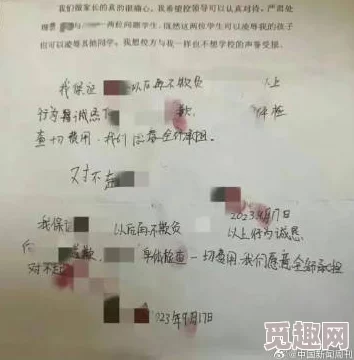 我们做家长的真的很痛心,我希望校领导可以认真对待,严肃处
与 一两位问题学生,既然这两位学生可以凌辱我的孩子
也可以凌辱其他同学。我想校方与我一样也不想学校的声誉受损。
我保证 以后再不欺负 人
行为 诚恳 歉, 体检
查一切费用,我们愿意全部承担。
对不
2023.9月17日
我保 以后再不欺负 以上行为诚恳
道歉, 身体检查一切费用我们愿意全部承担
对不起
2023年9月17日
觅趣网
@中国新闻周刊